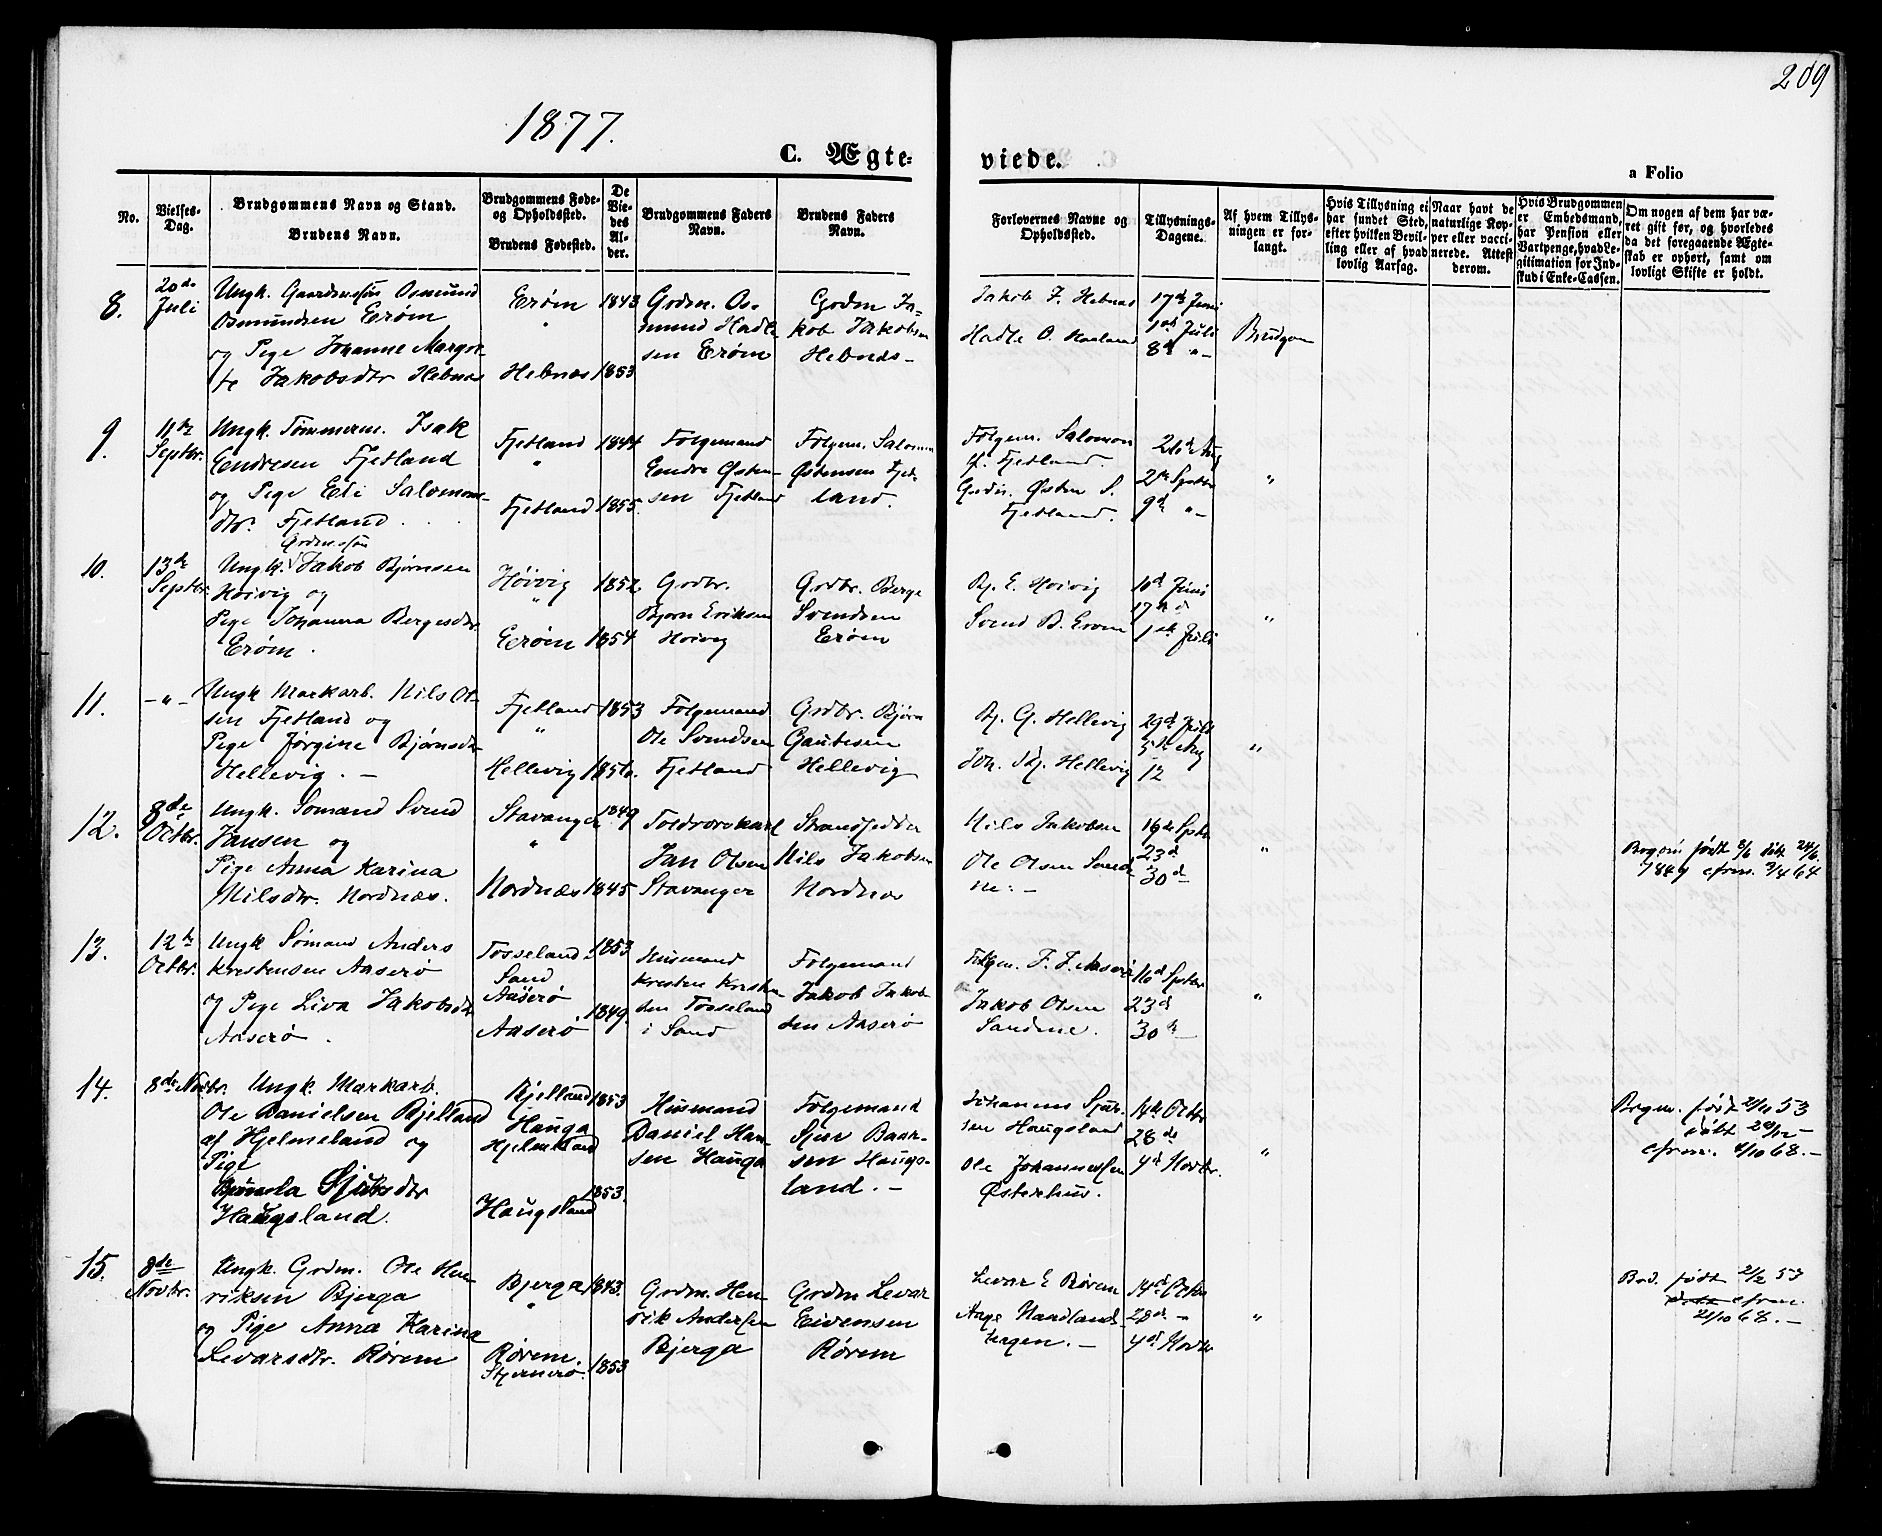 209
1877.
C. Ægte-
viede.
a Folio
No.
Vielses-
Dag.
Brudgommens Navn og Stand.
Brudens Navn.
Brudgommens Føde-
og Opholdssted.
Brudens Fødested.
De
Vie-
des
Al-
der.
Brudgommens Faders
Navn.
Brudens Faders
Navn.
Forlovernes Navne og
Opholdssted.
Tillysnings-
Dagene.
Af hvem Tillys-
ningen er for-
langt.
Hvis Tillysning ei
har fundet Sted,
efter hvilken Bevil-
ling eller af hvad
lovlig Aarsag.
Naar havt de
naturlige Kop-
per eller vacci-
nerede. Attest
derom.
Hvis Brudgommen
er Embedsmand,
har Pension eller
Vartpenge, hvad Le-
gitimation for Ind-
skud i Enke-Cassen.
Om nogen af dem har væ-
ret gift før, og hvorledes
da det foregaaende Ægte-
skab er ophørt, samt om
lovligt Skifte er holdt.
8.
20de
Juli
Ungk. Gaardmssøn Osmund
Osmundsen Erøm
og Pige Johanne Margre-
te Jakobsdtr Hebnæs
Erøm
"
Hebnæs
1843
1853
Grdm. Os-
mund Hadle-
sen Erøm
Grdm Ja-
kob Jakobsen
Hebnes-
Jakob J. Hebnæs
Hadle O. Haaland
17d Juni
1st Juli
8d "-
Brudgom
9.
11te
Septbr.
Ungk. Tømmerm. Isak
Endresen Fjetland
og Pige Eli Salomons-
dtr. Fjetland
Fjetland
"
Fjetland
1844
1855.
Folgemand
Endre Østen-
sen Fjetland
Folgem. Salomon
Østensen Fjet-
land.
Folgem. Salomon
Ø. Fjetland.
Grdm. Østen S.
Fjetland.
26d Aug
2de Septbr
9d "-
"
10.
13de
Septbr.
Grdmssøn
Ungk. Jakob Bjørnsen
Høivig og
Pige Johanna Bergesdtr.
Erøm.
Høivig
"
Erøm
1852
1854
Grdbr.
Bjørn Eriksen
Hoivig
Grdbr. Berge
Svendsen
Erøm
Bj. E. Hoivig
Svend B. Erøm
10d Juni
17de d
1ste Juli
"
11.
-"-
Ungk Markarb. Nils Ol-
sen Fjetland og
Pige Jørgine Bjørnsdtr
Hellevig. -
Fjetland
"
Hellevig
1853
1856.
Folgemand
Ole Svendsen
Fjetland
Grdbr. Bjørn
Gautesen
Hellevig
Bj. G. Hellevig
Joh. Bj. Hellevig
29d Juli
5te Aug
12
"
12.
8de
Octbr.
Ungk. Sømand Svend
Jansen og
Pige Anna Karina
Nilsdtr. Nordnæs.
Stavanger
"
Nordnæs
1849
1845
Toldroerskarl
Jan Olsen
Stavanger
Strandsidder
Nils Jakobsen
Nordnæs
Nils Jakobsen
Ole Olsen Sand-
ne. -
16de Sptbr
23d
30d
"
Brgom født 8/6 døbt 24/6
1849 cfrm. 3/4 64
13.
12te
Octbr.
Ungk Sømand Anders
Kristensen Aaserø
og Pige Liva Jakobsdtr
Aaserø .
Tosseland
Sand
Aaserø
Aaserø
1853
1849.
Husmand
Kresten Kresten-
sen Tosseland
i Sand
Folgemand
Jakob Jakob-
sen Aaserø
Folgem. J. J. Aaserø
Jakob Olsen
Sandene.
16d Sptbr
23d
30te
"
14.
8de Novbr.
Ungk. Markarb.
Ole Danielsen Bjelland
af Hjelmeland og
Pige
Sjursdtr
Haugsland.
Bjelland
Hauga
Hjelmeland
Haugsland
1853
1853.
Husmand
Daniel Han-
sen Hauga
Folgemand
Sjur Baar-
sen Haugs-
land. -
Johannes Sjur-
sen Haugsland
Ole Johannessen
Østerhus.
14de Octbr
28de
4de Novbr.
"
Brgm. født 2/11 53
døbt 29/12 -
cfrm. 4/10 68. -
15.
8de
Novbr.
Ungk. Grdm. Ole Hen-
riksen Bjerga
og Pige Anna Karina
Levarsdtr. Rørem
Bjerga
"
Rørem.
Stjernerø.
1843.
1853
Grdm. Hen-
rik Andersen
Bjerga
Grdm Levar
Eivensen
Rørem
Levar E Rørem
Aage Handlands-
hagen. -
14d Octbr
28de. -
4d Novbr
"
Brd. født 2/2 53
døbt cfrm.
21/10 68. -